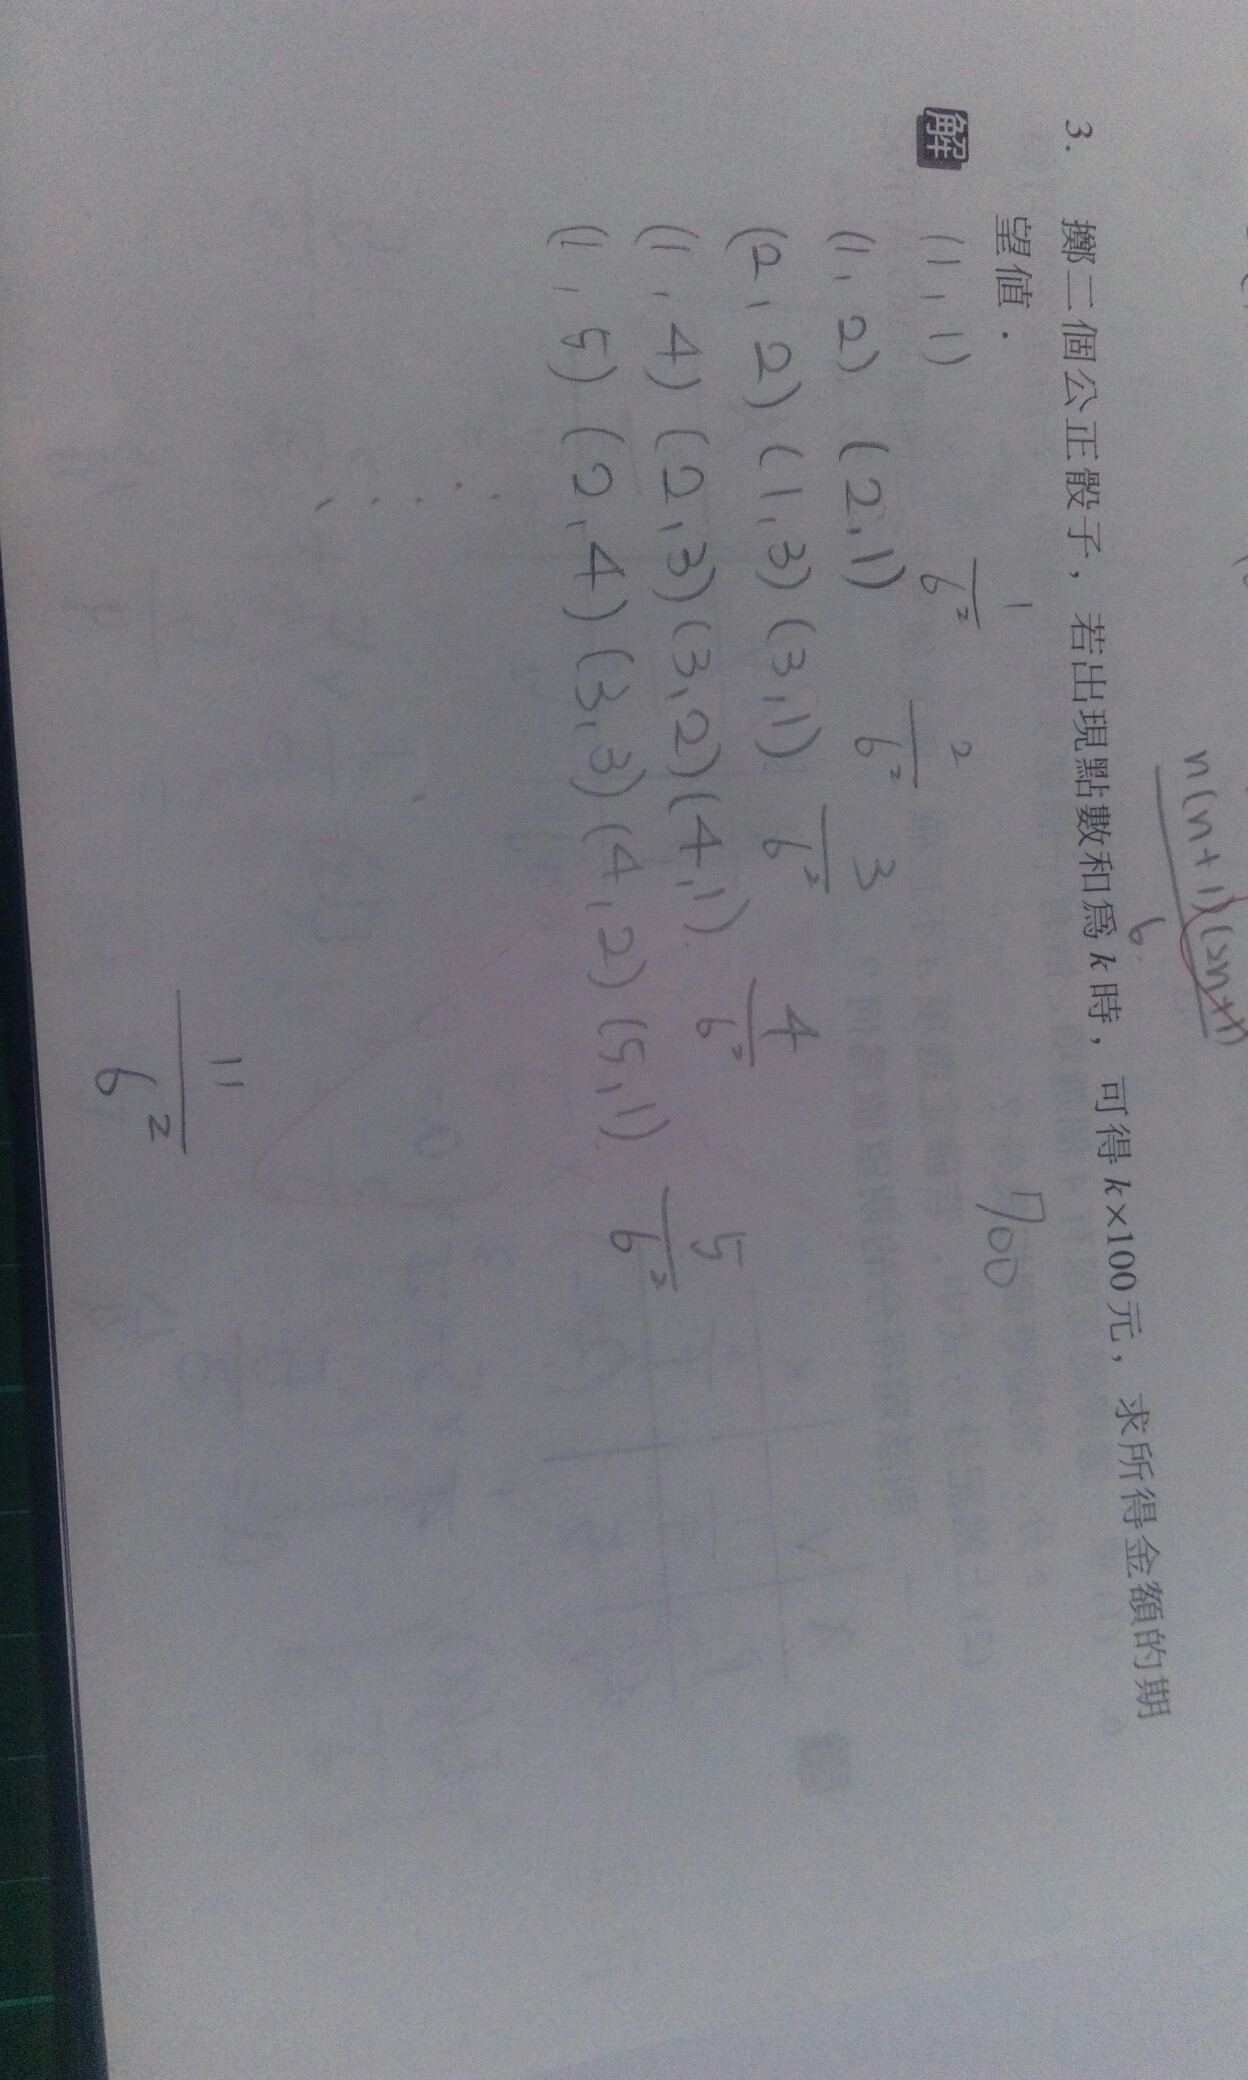 n(n+1)(2n+1)
6
3. 擲二個公正骰子，若出現點數和為k時，可得k×100元，求所得金額的期
望值．
700
解
(1,1) 1/6²
(1,2) (2,1) 2/6²
(2,2) (1,3) (3,1) 3/6²
(1,4) (2,3) (3,2) (4,1) 4/6²
(1,5) (2,4) (3,3) (4,2) (5,1) 5/6²
11/6²